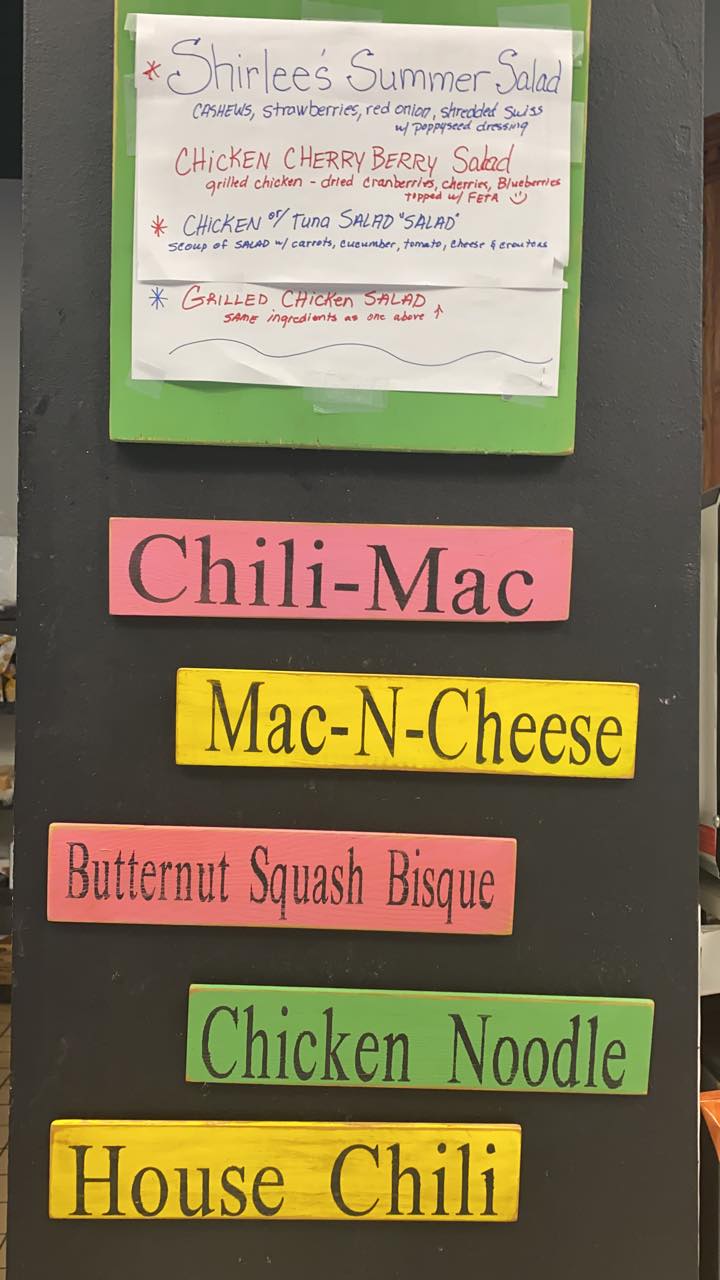 * Shirlee's Summer Salad
CASHEWS, strawberries, red onion, shredded Swiss
w/ poppyseed dressing
CHICKEN CHERRY BERRY Salad
grilled chicken - dried cranberries, cherries, Blueberries
topped w/ FETA ☺
* CHICKEN or/ Tuna SALAD "SALAD"
scoup of SALAD w/ carrots, cucumber, tomato, cheese & croutons
* GRILLED CHICKEN SALAD
SAME ingredients as one above ↑
Chili-Mac
Mac-N-Cheese
Butternut Squash Bisque
Chicken Noodle
House Chili